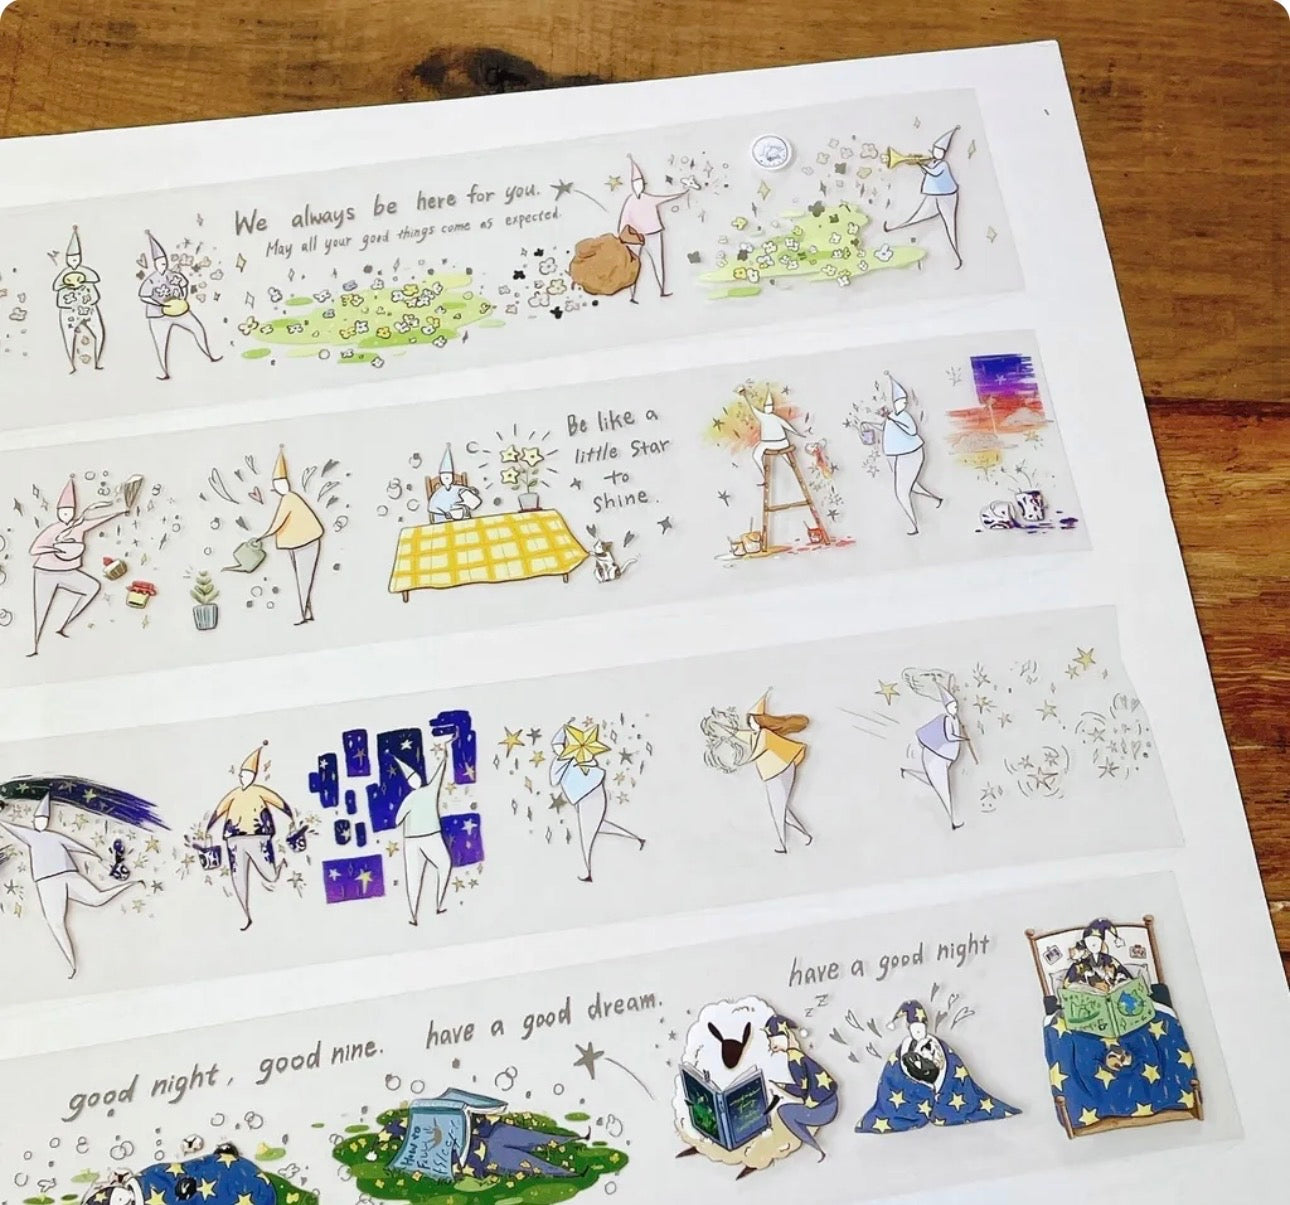 We always be here for you.
May all your good things come as expected.
Be like a
little Star
to
Shine.
good night, good nine.
have a good dream.
have a good night
zz
How to